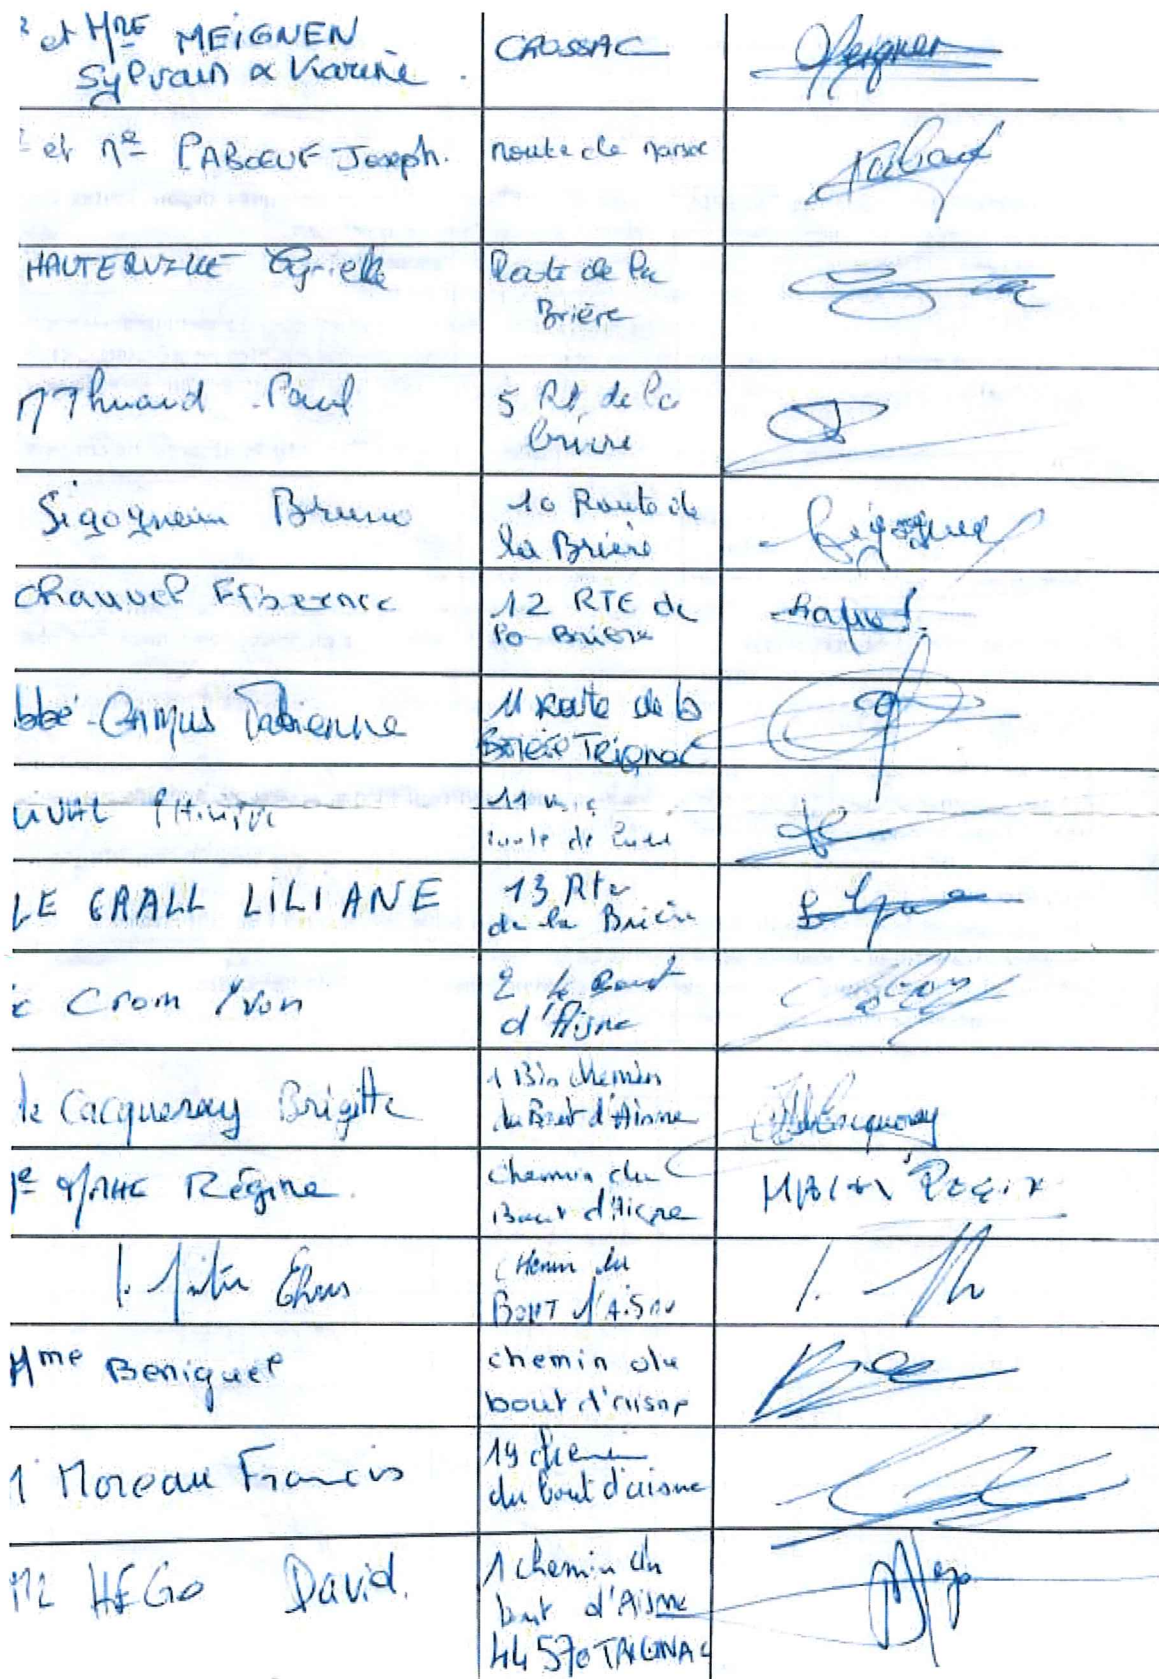 et Mme MEIGNEN
Sylvain & Karine
CROSSAC
Meignen
et Me PABOEUF Joseph.
route de
HAUTERVILLE Cyrielle
Route de la
Brière
M Thuaud Paul
5 Rte de la
brière
Sigogneau Bruno
10 Route de
la Brière
Sigogneau
Chauvel
12 RTE de
la Brière
Campus
11 Route de la
Brière Trignac
route de
LE GAALL LILIANE
13 Rte
de la Brière
Crom Yvon
2
d'Aisne
de Cacqueray Brigitte
1 Bis chemin
du Bout d'Aisne
de Cacqueray
Régine
chemin du
Bout d'Aisne
chemin du
BOUT d'AiSne
Mme Beniguel
chemin du
bout d'aisne
Moreau Francis
19 chemin
du bout d'aisne
Mr HEGO David.
1 chemin du
bout d'Aisne
44570 TRIGNAC
Hego